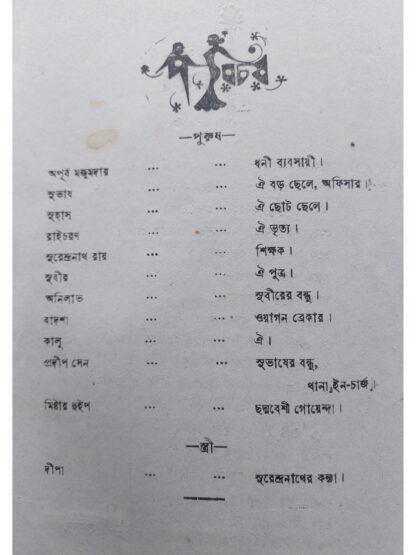 পরিচয়
—পুরুষ—
অপূর্ব মজুমদার ... ... ধনী ব্যবসায়ী।
সুভাষ ... ... ঐ বড় ছেলে, অফিসার।
সুহাস ... ... ঐ ছোট ছেলে।
রাইচরণ ... ... ঐ ভৃত্য।
সুরেন্দ্রনাথ রায় ... ... শিক্ষক।
সুবীর ... ... ঐ পুত্র।
অনিলাভ ... ... সুবীরের বন্ধু।
বাদশা ... ... ওয়াগন ব্রেকার।
কালু ... ... ঐ।
প্রদীপ সেন ... ... সুভাষের বন্ধু,
থানা ইন-চার্জ।
মিষ্টার হুইপ ... ... ছদ্মবেশী গোয়েন্দা।
—স্ত্রী—
দীপা ... ... সুরেন্দ্রনাথের কন্যা।